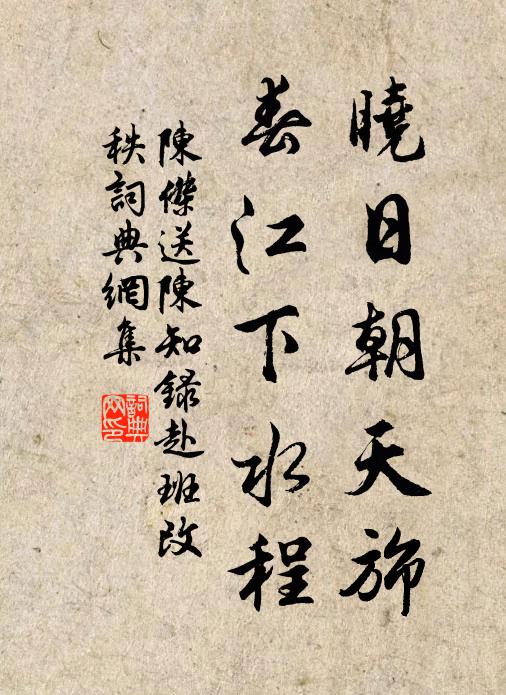 曉日朝天旆
春江下水程
陳傑送陳知錄赴班改
秩詞典網集
詞典
網印